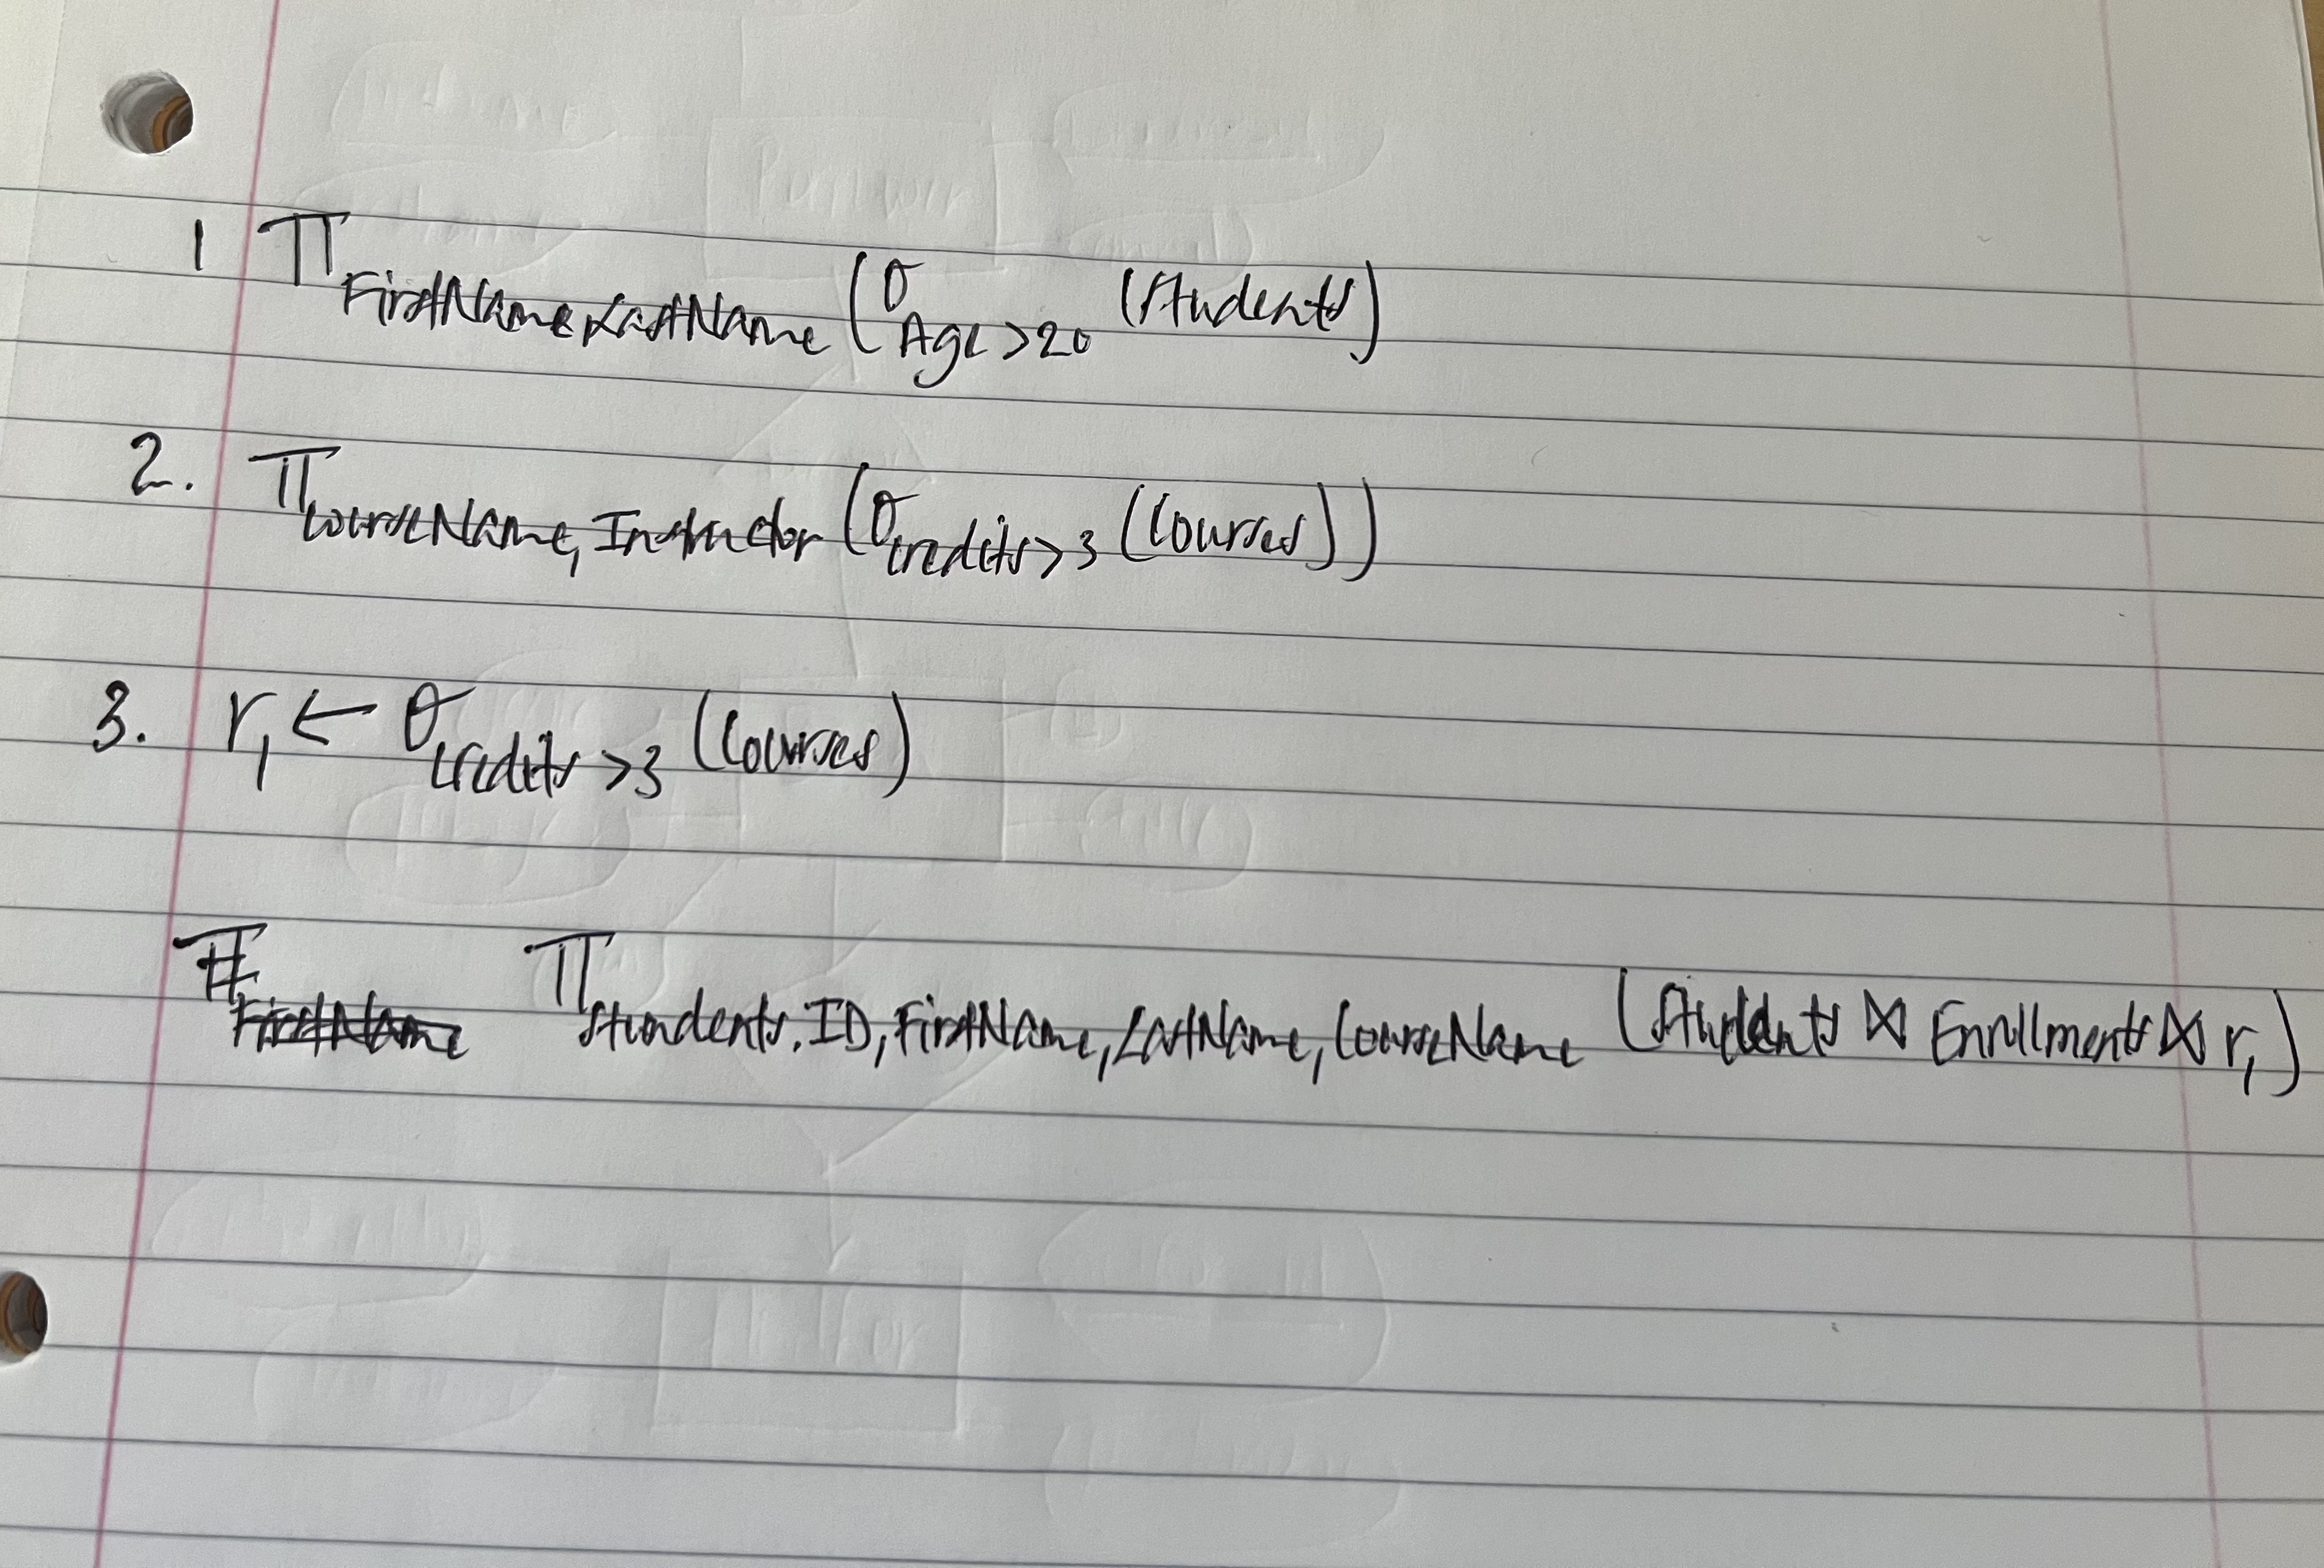 1 π FirstName,LastName (σ Age>20 (Students)
2. π CourseName, Instructor (σ credits>3 (Courses))
3. r₁ ← σ credits>3 (Courses)
π FirstName π Students.ID, FirstName, LastName, CourseName (Students ⋈ Enrollments ⋈ r₁)